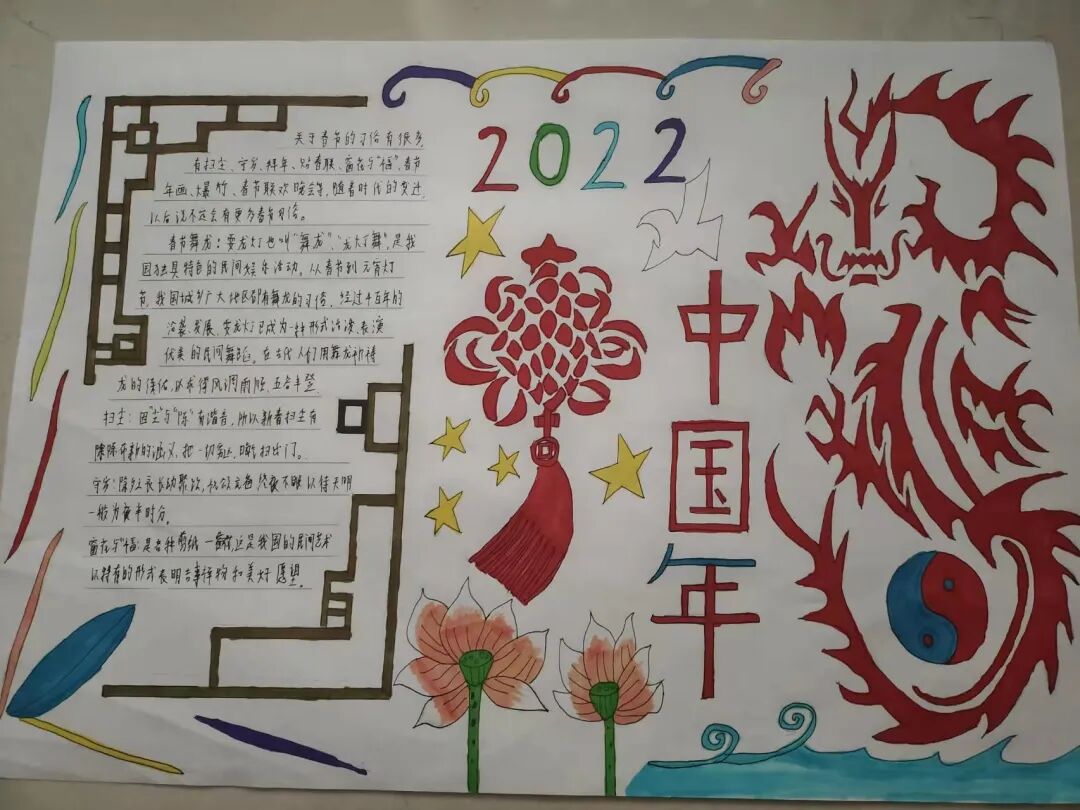 2022
中国年
关于春节的习俗有很多,
有扫尘、守岁、拜年、贴春联、窗花与"福"、春节
年画、爆竹、春节联欢晚会等,随着时代的变迁,
以后说不定会有更多春节习俗。
春节舞龙:耍龙灯也叫"舞龙"、"龙灯舞",是我
国独具特色的民间娱乐活动。从春节到元宵灯
节,我国城乡广大地区都有舞龙的习俗,经过千百年的
沿袭、发展,耍龙灯已成为一种形式活泼、表演
优美的民间舞蹈。在古代人们用舞龙祈祷
龙的保佑,以求得风调雨顺,五谷丰登
扫尘:因"尘"与"陈"有谐音,所以新春扫尘有
除陈布新的涵义,把一切 扫出门。
守岁:除夕 终夜不眠以待天明
一般为夜半时分。
窗花与"福":是各种剪纸 这是我国的民间艺术
以特有的形式表明吉事祥物和美好愿望。